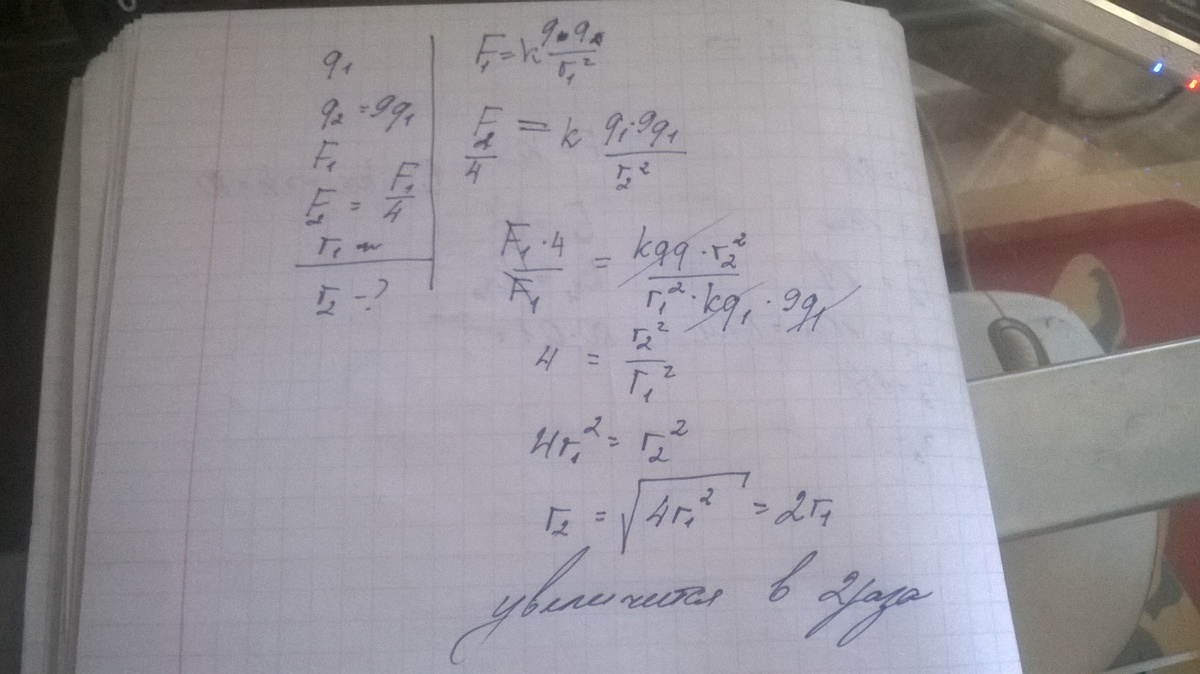 q₁
q₂ = 9q₁
F₁
F₂ = F₁/4
r₁
r₂ - ?
F₁ = k q · q / r₁²
F₂/4 = k q₁ · 9q₁ / r₂²
F₁ · 4 / F₁ = kqq · r₂² / r₁² · kq₁ · 9q₁
4 = r₂² / r₁²
4r₁² = r₂²
r₂ = √4r₁² = 2r₁
увеличится в 2 раза